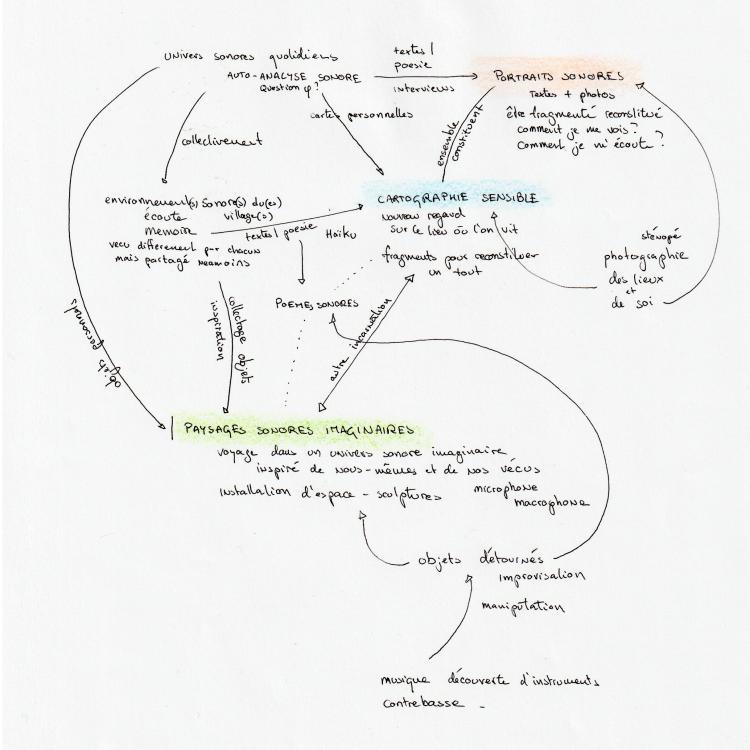 univers sonores quotidiens
AUTO-ANALYSE SONORE
Question φ ?
textes/
poesie
interviews
PORTRAITS SONORES
textes + photos
être fragmenté reconstitué
comment je me vois ?
Comment je m'écoute ?
collectivement
cartes personnelles
ensemble
constituent
environnement(s) sonore(s) du(es)
écoute village(s)
memoire
vecu differement par chacun
mais partagé neamoins
textes/ poesie
Haïku
CARTOGRAPHIE SENSIBLE
nouveau regard
sur le lieu où l'on vit
fragments pour reconstituer
un tout
sténopé
photographie
des lieux
et
de soi
POEMES SONORES
objets personnels
collectage objets
inspiration
autre incarnation
PAYSAGES SONORES IMAGINAIRES
voyage dans un univers sonore imaginaire
inspiré de nous-mêmes et de nos vécus
installation d'espace - sculptures
microphone
macrophone
objets détournés
improvisation
manipulation
musique découverte d'instruments
contrebasse -